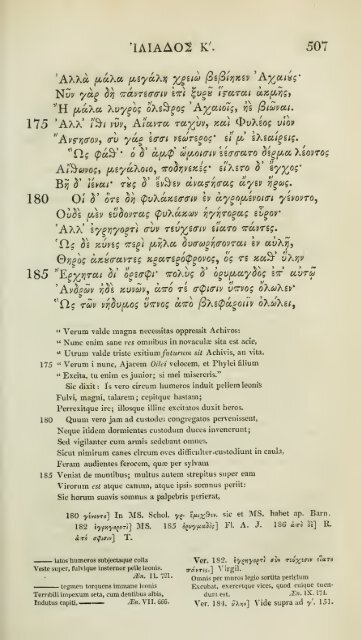 ἸΛΙΑΔΟΣ Κ´. 507
Ἀλλὰ μάλα μεγάλη χρειὼ βεβίηκεν Ἀχαιούς·
Νῦν γὰρ δὴ πάντεσσιν ἐπὶ ξυροῦ ἵσταται ἀκμῆς,
Ἢ μάλα λυγρὸς ὄλεθρος Ἀχαιοῖς, ἠὲ βιῶναι.
175 Ἀλλ᾽ ἴθι νῦν, Αἴαντα ταχὺν, καὶ Φυλέος υἱὸν
Ἄνστησον, σὺ γάρ ἐσσι νεώτερος· εἴ μ᾽ ἐλεαίρεις.
Ὣς φάθ᾽· ὁ δ᾽ ἀμφ᾽ ὤμοισιν ἑέσσατο δέρμα λέοντος
Αἴθωνος, μεγάλοιο, ποδηνεκές· εἵλετο δ᾽ ἔγχος·
Βῆ δ᾽ ἰέναι· τοὺς δ᾽ ἔνθεν ἀναστήσας ἄγεν ἥρως.
180 Οἱ δ᾽ ὅτε δὴ φυλάκεσσιν ἐν ἀγρομένοισι γένοντο,
Οὐδὲ μὲν εὕδοντας φυλάκων ἡγήτορας εὗρον·
Ἀλλ᾽ ἐγρηγορτὶ σὺν τεύχεσιν εἵατο πάντες.
Ὡς δὲ κύνες περὶ μῆλα δυσωρήσονται ἐν αὐλῇ,
Θηρὸς ἀκούσαντες κρατερόφρονος, ὅς τε καθ᾽ ὕλην
185 Ἔρχηται δι᾽ ὄρεσφι· πολὺς δ᾽ ὀρυμαγδὸς ἐπ᾽ αὐτῷ
Ἀνδρῶν ἠδὲ κυνῶν, ἀπό τέ σφισιν ὕπνος ὄλωλεν·
Ὣς τῶν νήδυμος ὕπνος ἀπὸ βλεφάροιϊν ὀλώλει,
“ Verum valde magna necessitas oppressit Achivos:
“ Nunc enim sane res omnibus in novacula sita est acie,
“ Utrum valde triste exitium futurum sit Achivis, an vita.
175 “ Verum i nunc, Ajacem Oilei velocem, et Phylei filium
“ Excita, tu enim es junior; si mei misereris.”
Sic dixit: Is vero circum humeros induit pellem leonis
Fulvi, magni, talarem; cepitque hastam;
Perrexitque ire; illosque illinc excitatos duxit heros.
180 Quum vero jam ad custodes congregatos pervenissent,
Neque itidem dormientes custodum duces invenerunt;
Sed vigilanter cum armis sedebant omnes.
Sicut nimirum canes circum oves difficulter-custodiunt in caula,
Feram audientes ferocem, quæ per sylvam
185 Veniat de montibus; multus autem strepitus super eam
Virorum est atque canum, atque ipsis somnus periit:
Sic horum suavis somnus a palpebris perierat,
180 γένοντο] In MS. Schol. γρ. ἔμιχθεν. sic et MS. habet ap. Barn.
182 ἐγρηγορτὶ] MS. 185 ὀρυμαδὸς] Fl. A. J. 186 ἀπὸ δὲ] R.
ἀπό σφισιν] T.
——— latos humeros subjectaque colla
Veste super, fulvique insternor pelle leonis.
Æn. II. 721.
——— tegumen torquens immane leonis
Terribili impexum seta, cum dentibus albis,
Indutus capiti. ——— Æn. VII. 666.
Ver. 182. ἐγρηγορτὶ σὺν τεύχεσιν εἵατο
πάντες.] Virgil.
Omnis per muros legio sortita periclum
Excubat, exercetque vices, quod cuique tuen-
dum est. Æn. IX. 174.
Ver. 184. ὕλην] Vide supra ad γ´. 151.